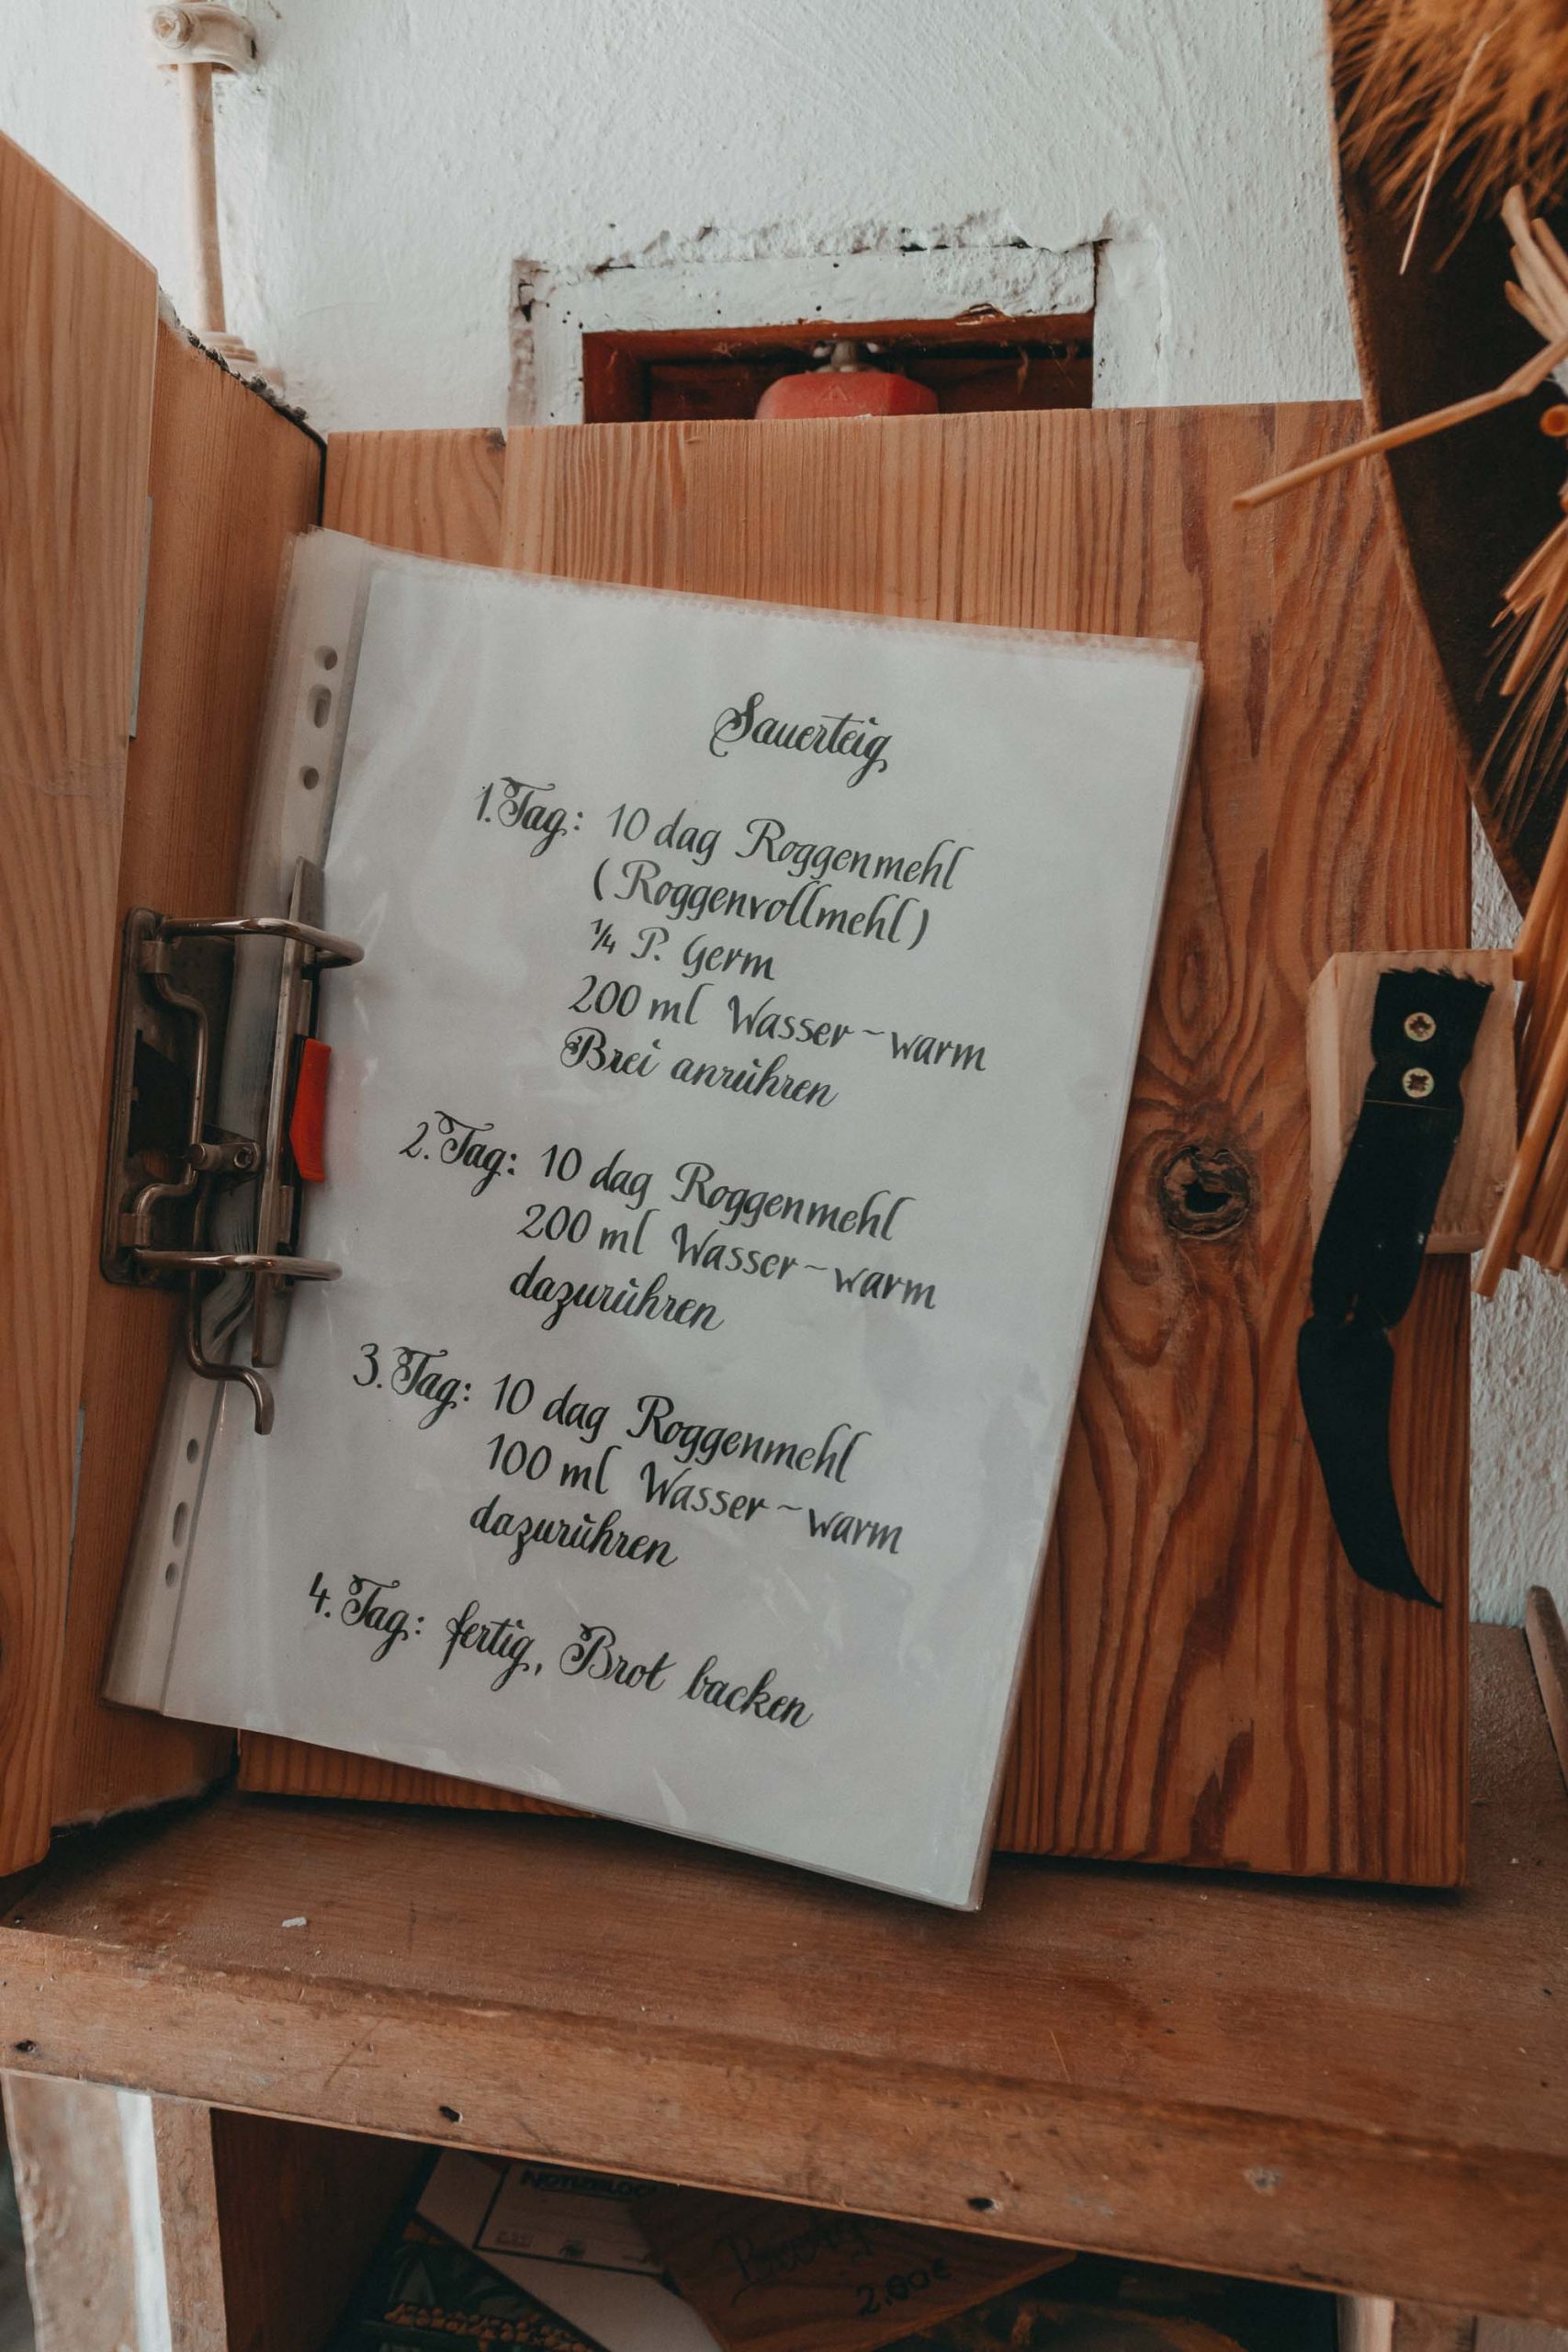 Sauerteig
1. Tag: 10 dag Roggenmehl
(Roggenvollmehl)
1/4 P. Germ
200 ml Wasser ~ warm
Brei anrühren
2. Tag: 10 dag Roggenmehl
200 ml Wasser ~ warm
dazurühren
3. Tag: 10 dag Roggenmehl
100 ml Wasser ~ warm
dazurühren
4. Tag: fertig, Brot backen
2.00€